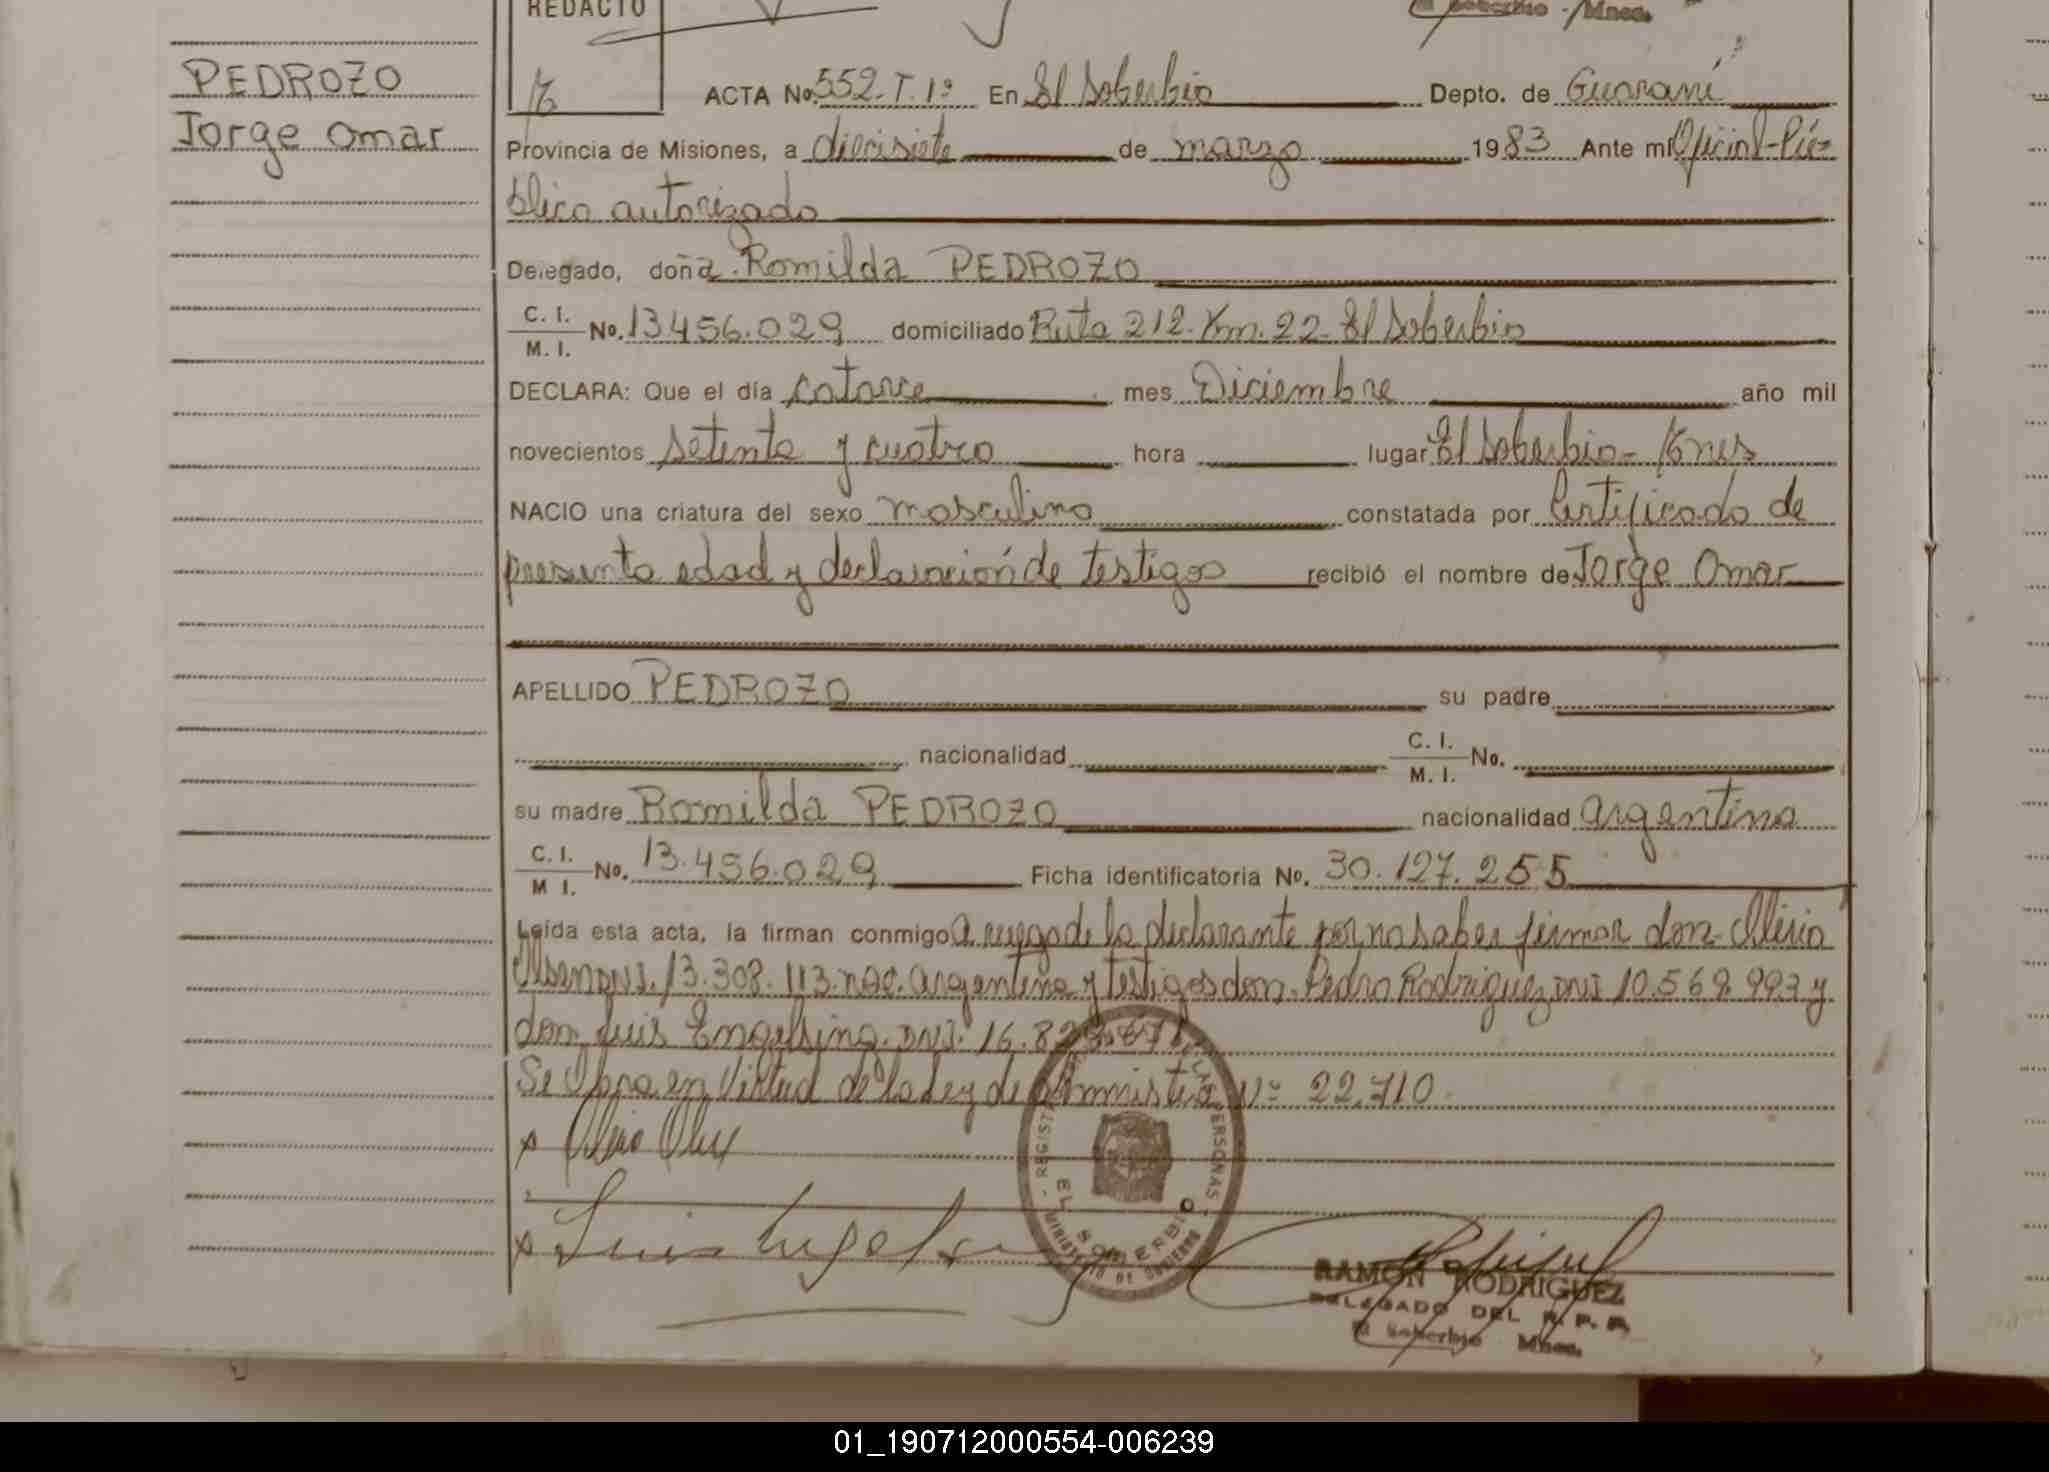 REDACTO
El Soberbio - Mnes.
PEDROZO
Jorge Omar
ACTA No. 552. T. 1º En El Soberbio Depto. de Guaraní
Provincia de Misiones, a diecisiete de marzo 1983 Ante mí Oficial-Pú-
blico autorizado
Delegado, doña Romilda PEDROZO
C. I. / M. I. No. 13.456.029 domiciliado Ruta 212. Km. 22- El Soberbio
DECLARA: Que el día catorce mes Diciembre año mil
novecientos setenta y cuatro hora lugar El Soberbio- Mnes
NACIO una criatura del sexo masculino constatada por Certificado de
presunta edad y declaración de testigos recibió el nombre de Jorge Omar
APELLIDO PEDROZO su padre
nacionalidad C. I. / M. I. No.
su madre Romilda PEDROZO nacionalidad argentina
C. I. / M I. No. 13.456.029 Ficha identificatoria No. 30.127.255
Leída esta acta, la firman conmigo a ruego de la declarante por no saber firmar don
DNI. 13.308.113. nac. argentina y testigos don. Pedro Rodriguez DNI 10.569.993 y
don Luis Engelsing. DNI. 16.8
Se Labra en Virtud de la Ley de Amnistia Nº 22.710
REGISTRO LAS PERSONAS
EL SOBERBIO
MINISTERIO DE GOBIERNO
RAMON RODRIGUEZ
DELEGADO DEL R. P. P.
El Soberbio Mnes.
01_190712000554-006239